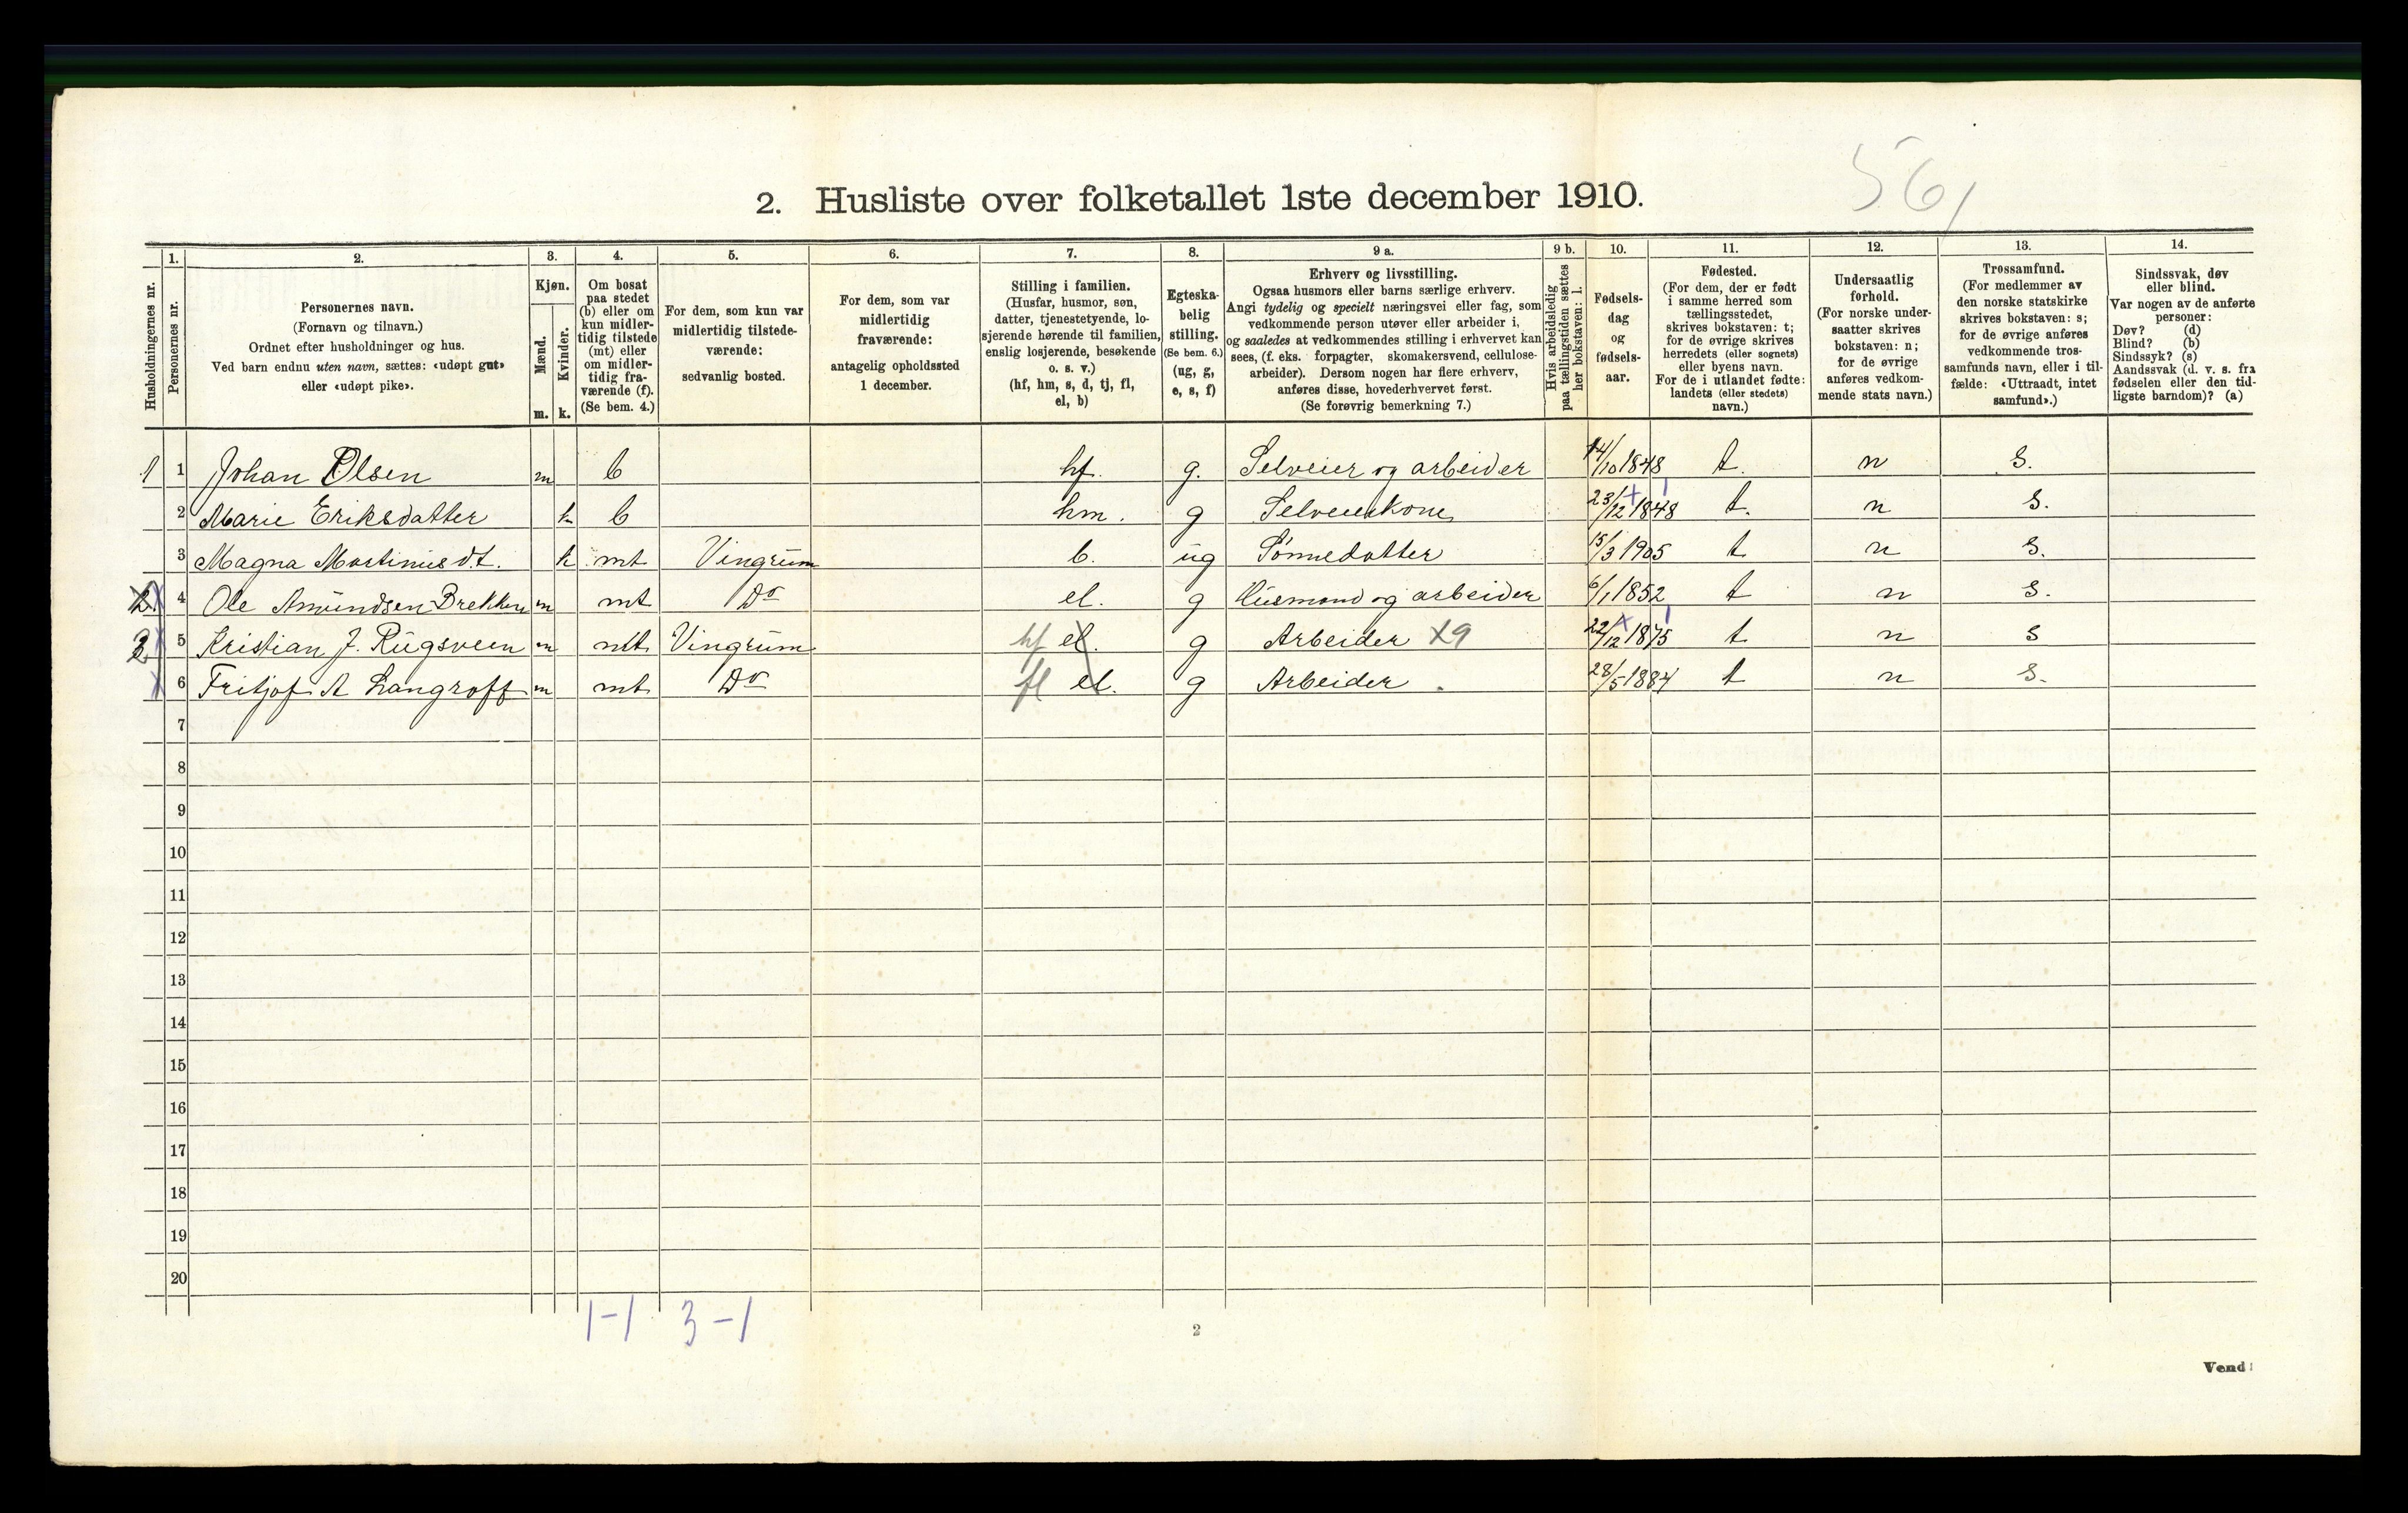 561
2. Husliste over folketallet 1ste december 1910.
Husholdningernes nr.
1.
Personernes nr.
2.
Personernes navn.
(Fornavn og tilnavn.)
Ordnet efter husholdninger og hus.
Ved barn endnu uten navn, sættes: «udøpt gut»
eller «udøpt pike».
3.
Kjøn.
Mænd.
Kvinder.
m. k.
4.
Om bosat
paa stedet
(b) eller om
kun midler-
tidig tilstede
(mt) eller
om midler-
tidig fra-
værende (f).
(Se bem. 4.)
5.
For dem, som kun var
midlertidig tilstede-
værende:
sedvanlig bosted.
6.
For dem, som var
midlertidig
fraværende:
antagelig opholdssted
1 december.
7.
Stilling i familien.
(Husfar, husmor, søn,
datter, tjenestetyende, lo-
sjerende hørende til familien,
enslig losjerende, besøkende
o. s. v.)
(hf, hm, s, d, tj, fl,
el, b)
8.
Egteska-
belig
stilling.
(Se bem. 6.)
(ug, g,
e, s, f)
9 a.
Erhverv og livsstilling.
Ogsaa husmors eller barns særlige erhverv.
Angi tydelig og specielt næringsvei eller fag, som
vedkommende person utøver eller arbeider i,
og saaledes at vedkommendes stilling i erhvervet kan
sees, (f. eks. forpagter, skomakersvend, cellulose-
arbeider). Dersom nogen har flere erhverv,
anføres disse, hovederhvervet først.
(Se forøvrig bemerkning 7.)
9 b.
Hvis arbeidsledig
paa tællingstiden sættes
her bokstaven: l.
10.
Fødsels-
dag
og
fødsels-
aar.
11.
Fødested.
(For dem, der er født
i samme herred som
tællingsstedet,
skrives bokstaven: t;
for de øvrige skrives
herredets (eller sognets)
eller byens navn.
For de i utlandet fødte:
landets (eller stedets)
navn.)
12.
Undersaatlig
forhold.
(For norske under-
saatter skrives
bokstaven: n;
for de øvrige
anføres vedkom-
mende stats navn.)
13.
Trossamfund.
(For medlemmer av
den norske statskirke
skrives bokstaven: s;
for de øvrige anføres
vedkommende tros-
samfunds navn, eller i til-
fælde: «Uttraadt, intet
samfund».)
14.
Sindssvak, døv
eller blind.
Var nogen av de anførte
personer:
Døv? (d)
Blind? (b)
Sindssyk? (s)
Aandssvak (d. v. s. fra
fødselen eller den tid-
ligste barndom)? (a)
1 1 Johan Olsen m b hf. g. Selveier og arbeider 14/10 1848 t. n s.
2 Marie Eriksdatter k b hm. g Selveierkone 23/12 1848 t. n s.
3 Magna Martinusd.t. k mt Vingrum b. ug Sønnedatter 15/3 1905 t n s.
2 4 Ole Amundsen Brekken m mt Do el. g Husmand og arbeider 6/1 1852 t n s.
5 Kristian J. Rugsveen m mt Vingrum hf el. g Arbeider X9 22/12 1875 t n s
6 Fritjof A Langroff m mt Do fl el. g Arbeider . 28/5 1884 t n s.
7
8
9
10
11
12
13
14
15
16
17
18
19
20
1-1 3-1
2
Vend!